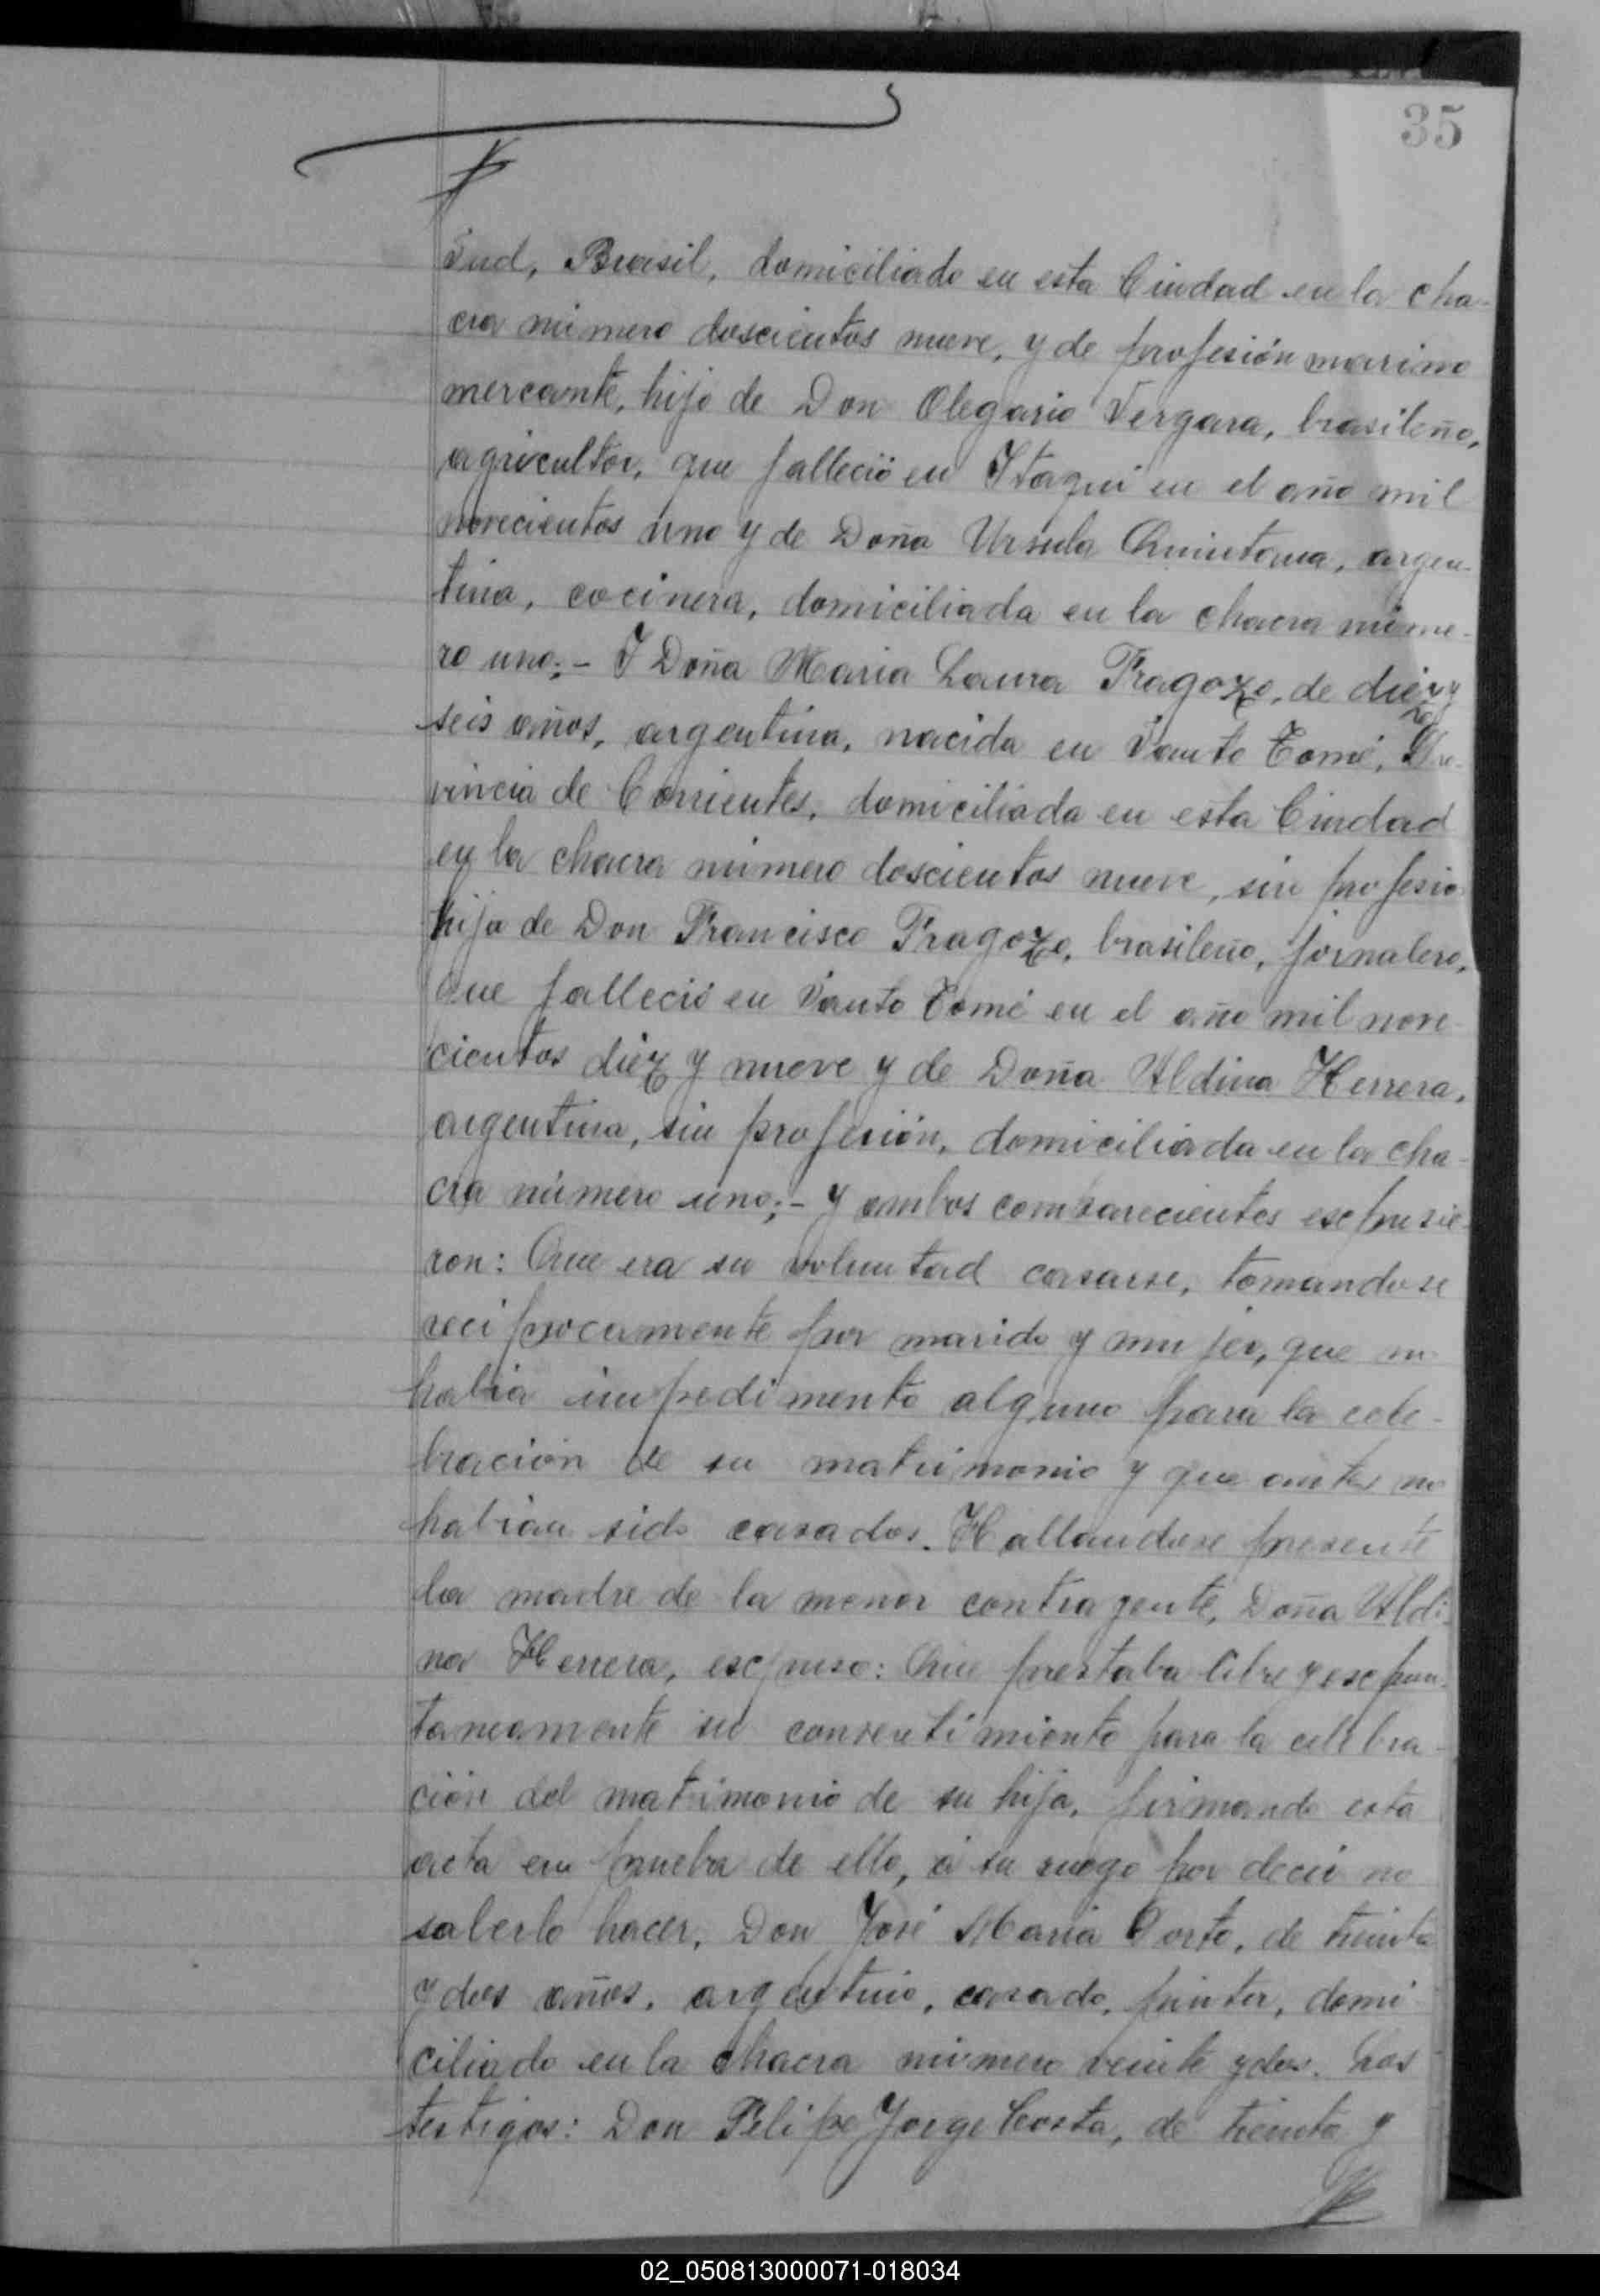 35
Sud, Brasil, domiciliado en esta Ciudad en la cha-
cra número doscientos nueve, y de profesión marino
mercante, hijo de Don Olegario Vergara, brasileño,
agricultor, que falleció en Itaqui en el año mil
novecientos uno y de Doña Ursula Quintana, argen-
tina, cocinera, domiciliada en la chacra núme-
ro uno;- Y Doña Maria Laura Fragozo, de diez y
seis años, argentina, nacida en Santo Tomé, Pro-
vincia de Corrientes, domiciliada en esta Ciudad
en la chacra número doscientos nueve, sin profesio
hija de Don Francisco Fragozo, brasileño, jornalero,
que falleció en Santo Tomé en el año mil nove-
cientos diez y nueve y de Doña Aldina Herrera,
argentina, sin profesión, domiciliada en la cha-
cra número uno;- y ambos comparecientes escpusie-
ron: Que era su voluntad casarse, tomandose
reciprocamente por marido y mujer, que no
habia impedimento alguno para la cele-
bración de su matrimonio y que antes no
habian sido casados. Hallandose presente
la madre de la menor contragente, Doña Aldi-
na Herrera, escpuso: Que prestaba libre y escpon-
taneamente su consentimiento para la celebra-
ción del matrimonio de su hija, firmando esta
acta en prueba de ello, á su ruego por decir no
saberlo hacer, Don José Maria Porto, de treinta
y dos años, argentino, casado, pintor, domi
ciliado en la chacra número veinte y dos. Los
testigos: Don Felipe Jorge Costa, de treinta y
02_050813000071-018034